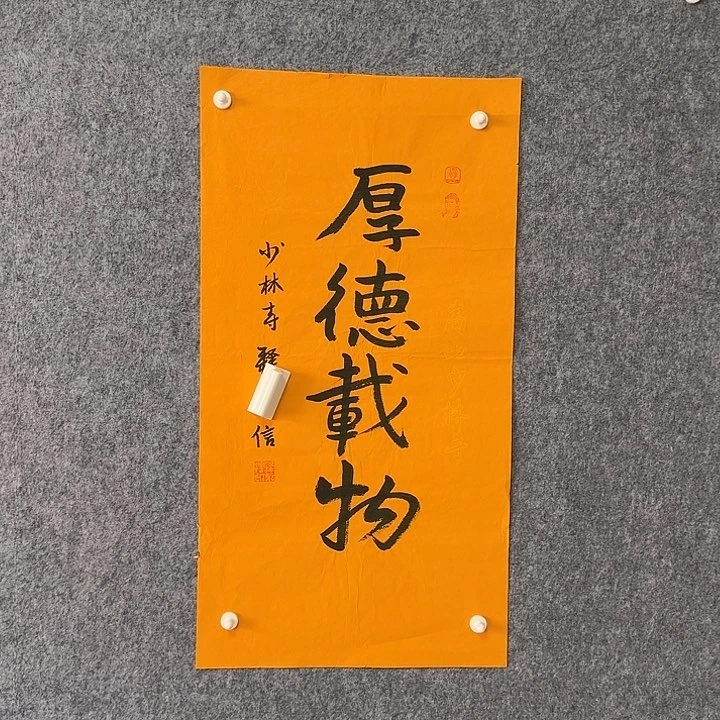 厚德載物
少林寺 釋 信